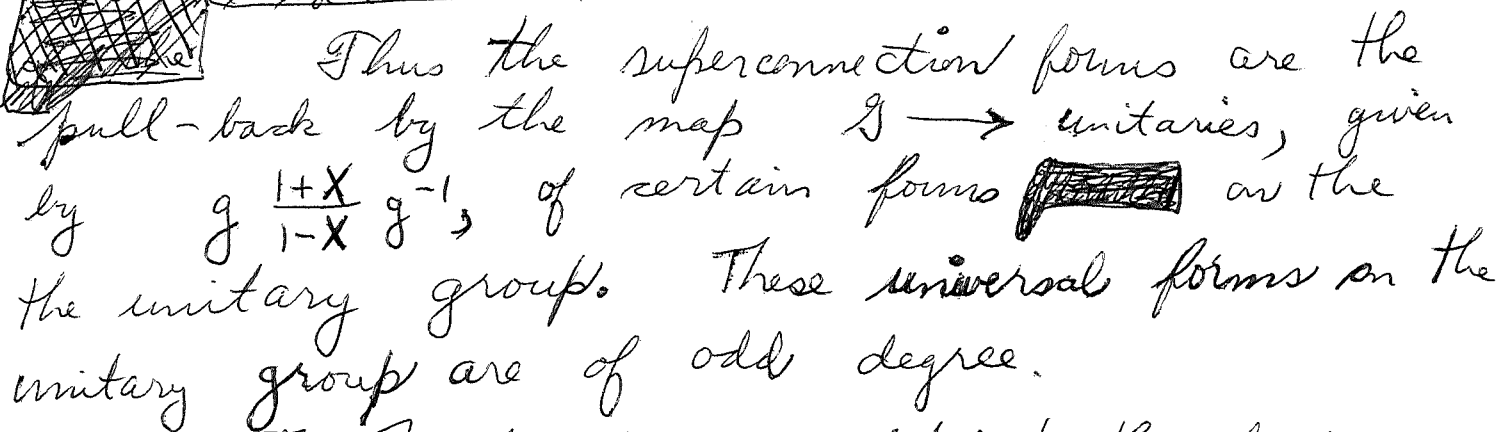 Thus the superconnection forms are the
pull-back by the map 𝒢 ⟶ unitaries, given
by g \frac{1+X}{1-X} g^{-1}, of certain forms on the
the unitary group. These universal forms on the
unitary group are of odd degree.